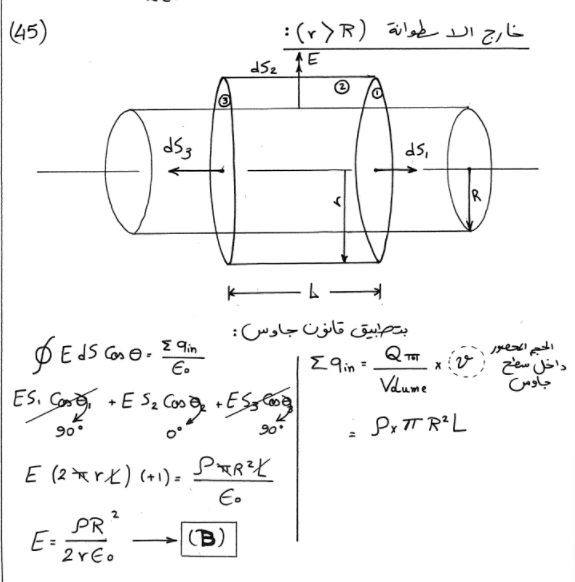 (45)
خارج الاسطوانة (r > R):
E
dS₂
③ ② ①
dS₃
dS₁
r
R
L
بتطبيق قانون جاوس:
∮ E dS Cos θ = Σ qin / ϵ₀
ES₁ Cos θ₁ + E S₂ Cos θ₂ + ES₃ Cos θ₃
90° 0° 90°
E (2 π r L) (+1) = ρ π R² L / ϵ₀
E = ρR² / 2rϵ₀ → (B)
Σ qin = Q / Volume × V
الحجم المحصور
داخل سطح
جاوس
= ρ × π R² L